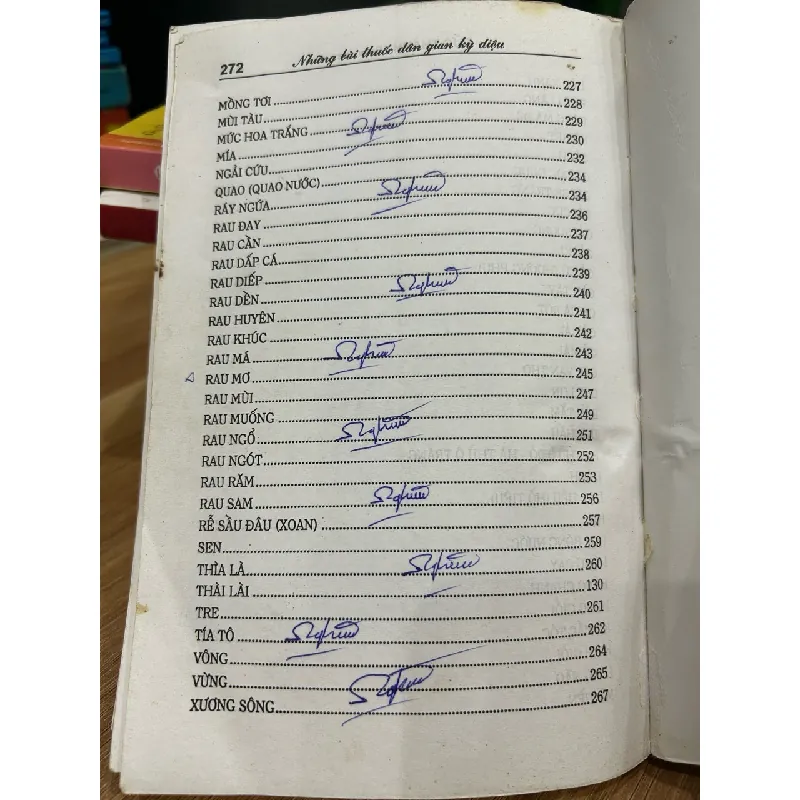 272 Những bài thuốc dân gian kỳ diệu
MỒNG TƠI 227
MÙI TÀU 228
MỨC HOA TRẮNG 229
MÍA 230
NGẢI CỨU 232
QUAO (QUAO NƯỚC) 234
RÁY NGỨA 234
RAU ĐAY 236
RAU CẦN 237
RAU DẤP CÁ 238
RAU DIẾP 239
RAU DỀN 240
RAU HUYÊN 241
RAU KHÚC 242
RAU MÁ 243
RAU MƠ 245
RAU MÙI 247
RAU MUỐNG 249
RAU NGỔ 251
RAU NGÓT 252
RAU RĂM 253
RAU SAM 256
RỄ SẦU ĐÂU (XOAN) 257
SEN 259
THÌA LÀ 260
THÀI LÀI 130
TRE 261
TÍA TÔ 262
VÔNG 264
VỪNG 265
XƯƠNG SÔNG 267